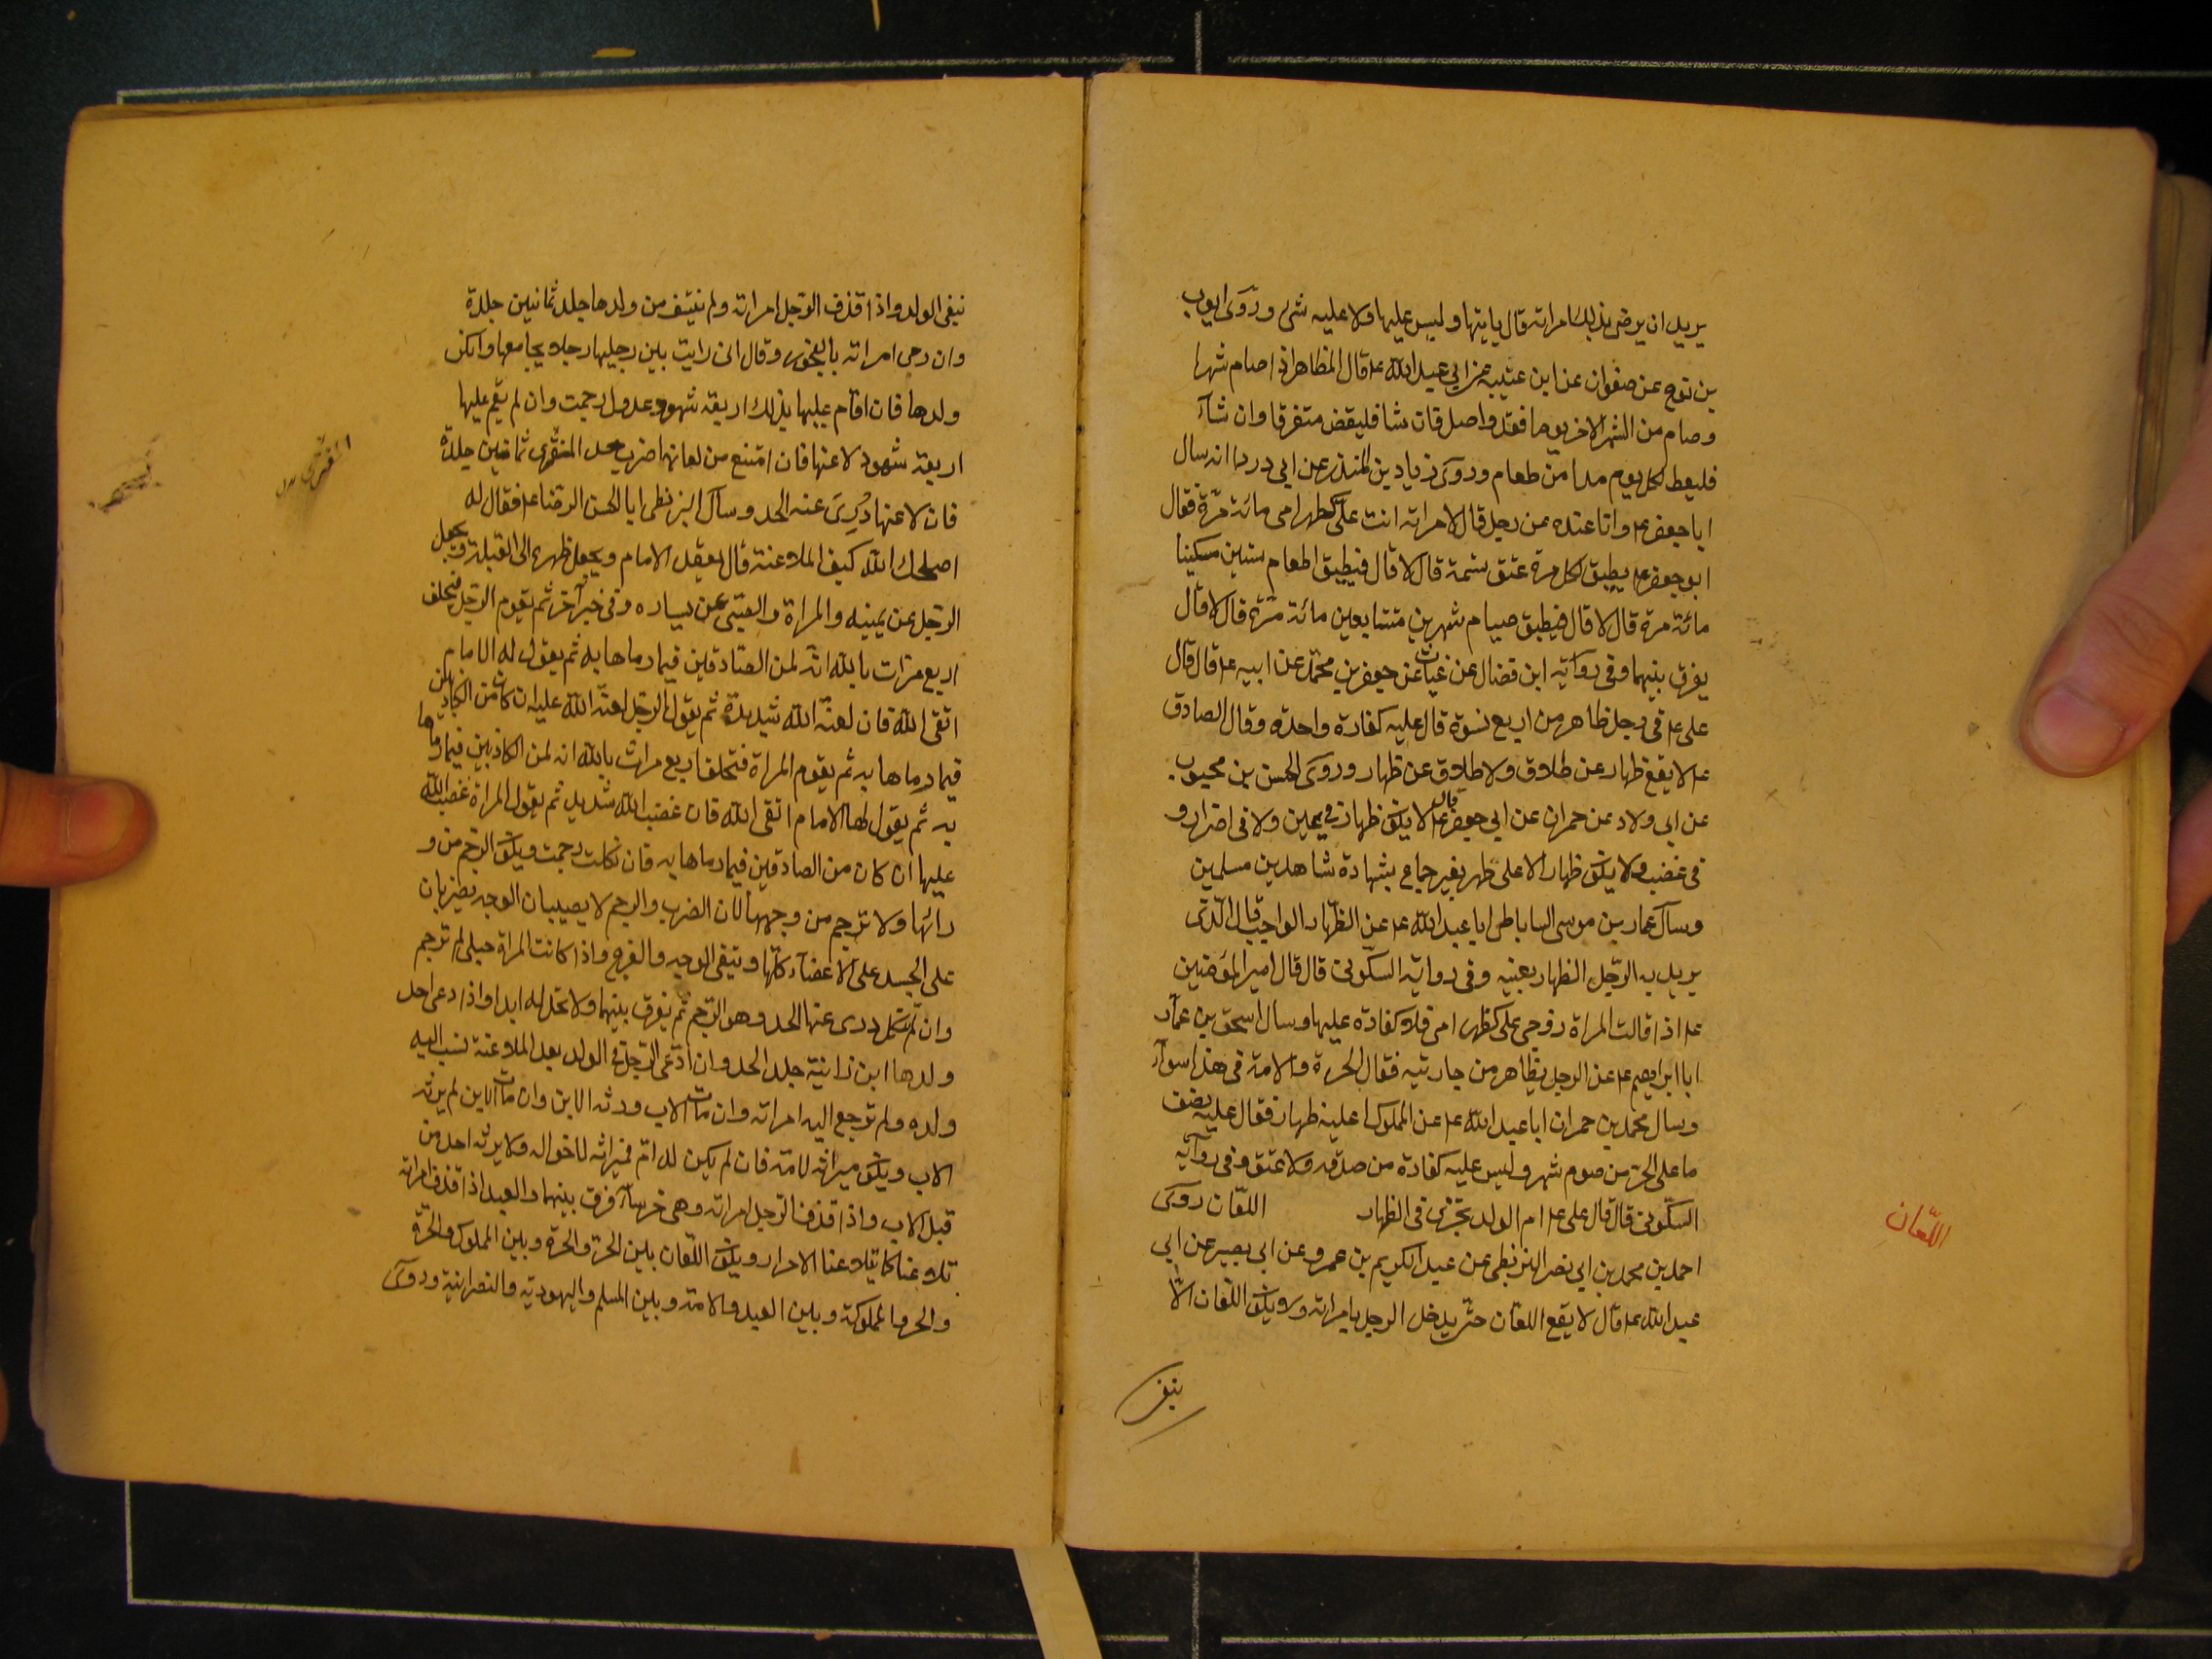 يريد ان يرضى بذلك امراته قال ياتيها وليس عليها ولا عليه شئ وروى ايوب
بن نوح عن صفوان عن ابن عيينه عن ابي عبد الله ع‍ قال المظاهر اذا صام شهرا
وصام من الشهر الاخر يوما فقد واصل فان شا فليقض متفرقا وان شآء
فليعط لكل يوم مدا من طعام وروى زياد بن المنذر عن ابي دردا انه سال
ابا جعفر ع‍ وانا عنده عن رجل قال لامراته انت علىّ كظهر امى مائة مرّة فقال
ابو جعفر ع‍ يطيق لكل مرة عتق نسمة قال لا قال فيطيق اطعام ستين مسكينا
مائة مرة قال لا قال فيطيق صيام شهرين متتابعين مائة مرّة قال لا قال
يفرق بينهما وفى رواية ابن فضال عن غياث عن جعفر بن محمّد عن ابيه ع‍ قال قال
على ع‍ فى رجل ظاهر من اربع نسوة قال عليه كفارة واحدة وقال الصادق
ع‍ لا يقع ظهار عن طلاق ولا طلاق عن ظهار وروى الحسن بن محبوب
عن ابي ولاد عن حمران عن ابي جعفر ع‍ قال لا يكون ظهار فى يمين ولا فى اضرار و
فى غضب ولا يكون ظهار الا على طهر بغير جماع بشهادة شاهدين مسلمين
وسال عمار بن موسى الساباطى ابا عبد الله ع‍ عن الظهار الواجب قال الّذى
يريد به الرّجل الظهار بعينه وفى رواية السكونى قال قال امير المؤمنين
ع‍ اذا قالت المراة زوجى على كظهر امى فلا كفارة عليها وسال اسحق بن عمار
ابا ابراهيم ع‍ عن الرجل يظاهر من جاريته فقال الحرة والامة فى هذا سوآء
وسال محمد بن حمران ابا عبد الله ع‍ عن المملوك اعليه ظهار فقال عليه نصف
ما على الحر من صوم شهر وليس عليه كفارة من صدقه ولا عتق وفى رواية
السكونى قال قال على ع‍ ام الولد تجزى فى الظهار اللعّان روى
اللعّان
احمد بن محمد بن ابي نصر البزنطى عن عبد الكريم بن عمرو عن ابي بصير عن ابي
عبد الله ع‍ قال لا يقع اللعان حتى يدخل الرجل بامراته ولا يكون اللعان الّا
بنفى
نيفى الولد واذا قذف الرّجل امراته ولم ينتف من ولدها جلد ثمانين جلدة
وان رمى امراته بالفجور وقال انى رايت بين رجليها رجلا يجامعها وانكر
ولدها فان اقام عليها بذلك اربعة شهود عدول رجمت وان لم يقم عليها
اربعة شهود لاعنها فان امتنع من لعانها ضرب حد المفترى ثمانين جلدة
المفترى
فان لاعنها درئ عنه الحد وسال البزنطى ابا الحسن الرضا ع‍ فقال له
اصلحك الله كيف الملاعنة قال يقعد الامام ويجعل ظهره الى القبلة ويجعل
الرّجل عن يمينه والمراة والصّبى عن يساره وفى خبر آخر ثم يقوم الرّجل فيحلف
اربع مرّات بالله انّه لمن الصّادقين فيما رماها به ثم يقول له الامام
اتقى الله فان لعنة الله شديدة ثم يقول الرّجل لعنة الله عليه ان كان من الكاذبين
فيما رماها به ثم يقوم المراة فتحلف اربع مرات بالله انه لمن الكاذبين فيما رماها
به ثم يقول لها الامام اتقى الله فان غضب الله شديد ثم يقول المراة غضب الله
عليها ان كان من الصادقين فيما رماها به فان نكلت رجمت ويكون الرّجم من و
رائها ولا ترجم من وجهها لان الضرب والرجم لا يصيبان الوجه يضربان
على الجسد على الاعضآء كلّها ويتقى الوجه والفرج واذا كانت المراة حبلى لم ترجم
وان لم تنكل درى عنها الحد وهو الرّجم ثم يفرق بينهما ولا تحل له ابدا واذا دعى احد
ولدها ابن زانية جلد الحد وان ادّعى الرّجل الولد بعد الملاعنة نسب اليه
ولده ولم ترجع اليه امراته وان مات الاب ورثه الابن وان مات الابن لم يرثه
الاب ويكون ميراثه لامّه فان لم يكن له امّ فميراثه لاخواله ولا يرثه احد من
قبل الاب واذا قذف الرّجل امراته وهى خرسآء فرق بينهما والعبد اذا قذف امراته
تلاعنا كما يتلاعنا الاحرار ويكون اللّعان بين الحرّ والحرة وبين المملوك والحرّة
والحر والمملوكة وبين العبد والامة وبين المسلم واليهودية والنصرانية وروى